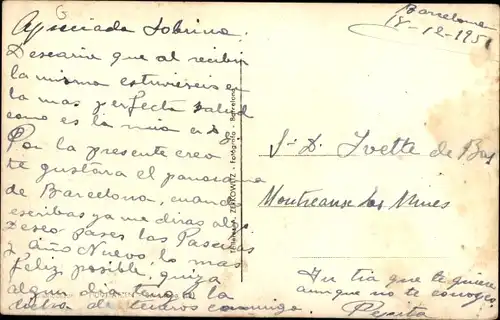 Barcelona
18-12-195
Apreciada Sobrina.
Desearia que al recibir
la misma estuvierais en
la mas perfecta salud
como es la mia
Por la presente creo
te gustara el panorama
de Barcelona, cuando
escribas ya me diras algo
Deseo pases las Pascuas
y Año Nuevo, lo mas
feliz posible, quiza
algun dia tengo la
de teneros conmigo
ZERKOWITZ - Fotógrafo - Barcelona
Sta. D. Ivette de Bas
Montceaux les Mines
Tu tia que te quiere
aunque no te conozco
Pepita